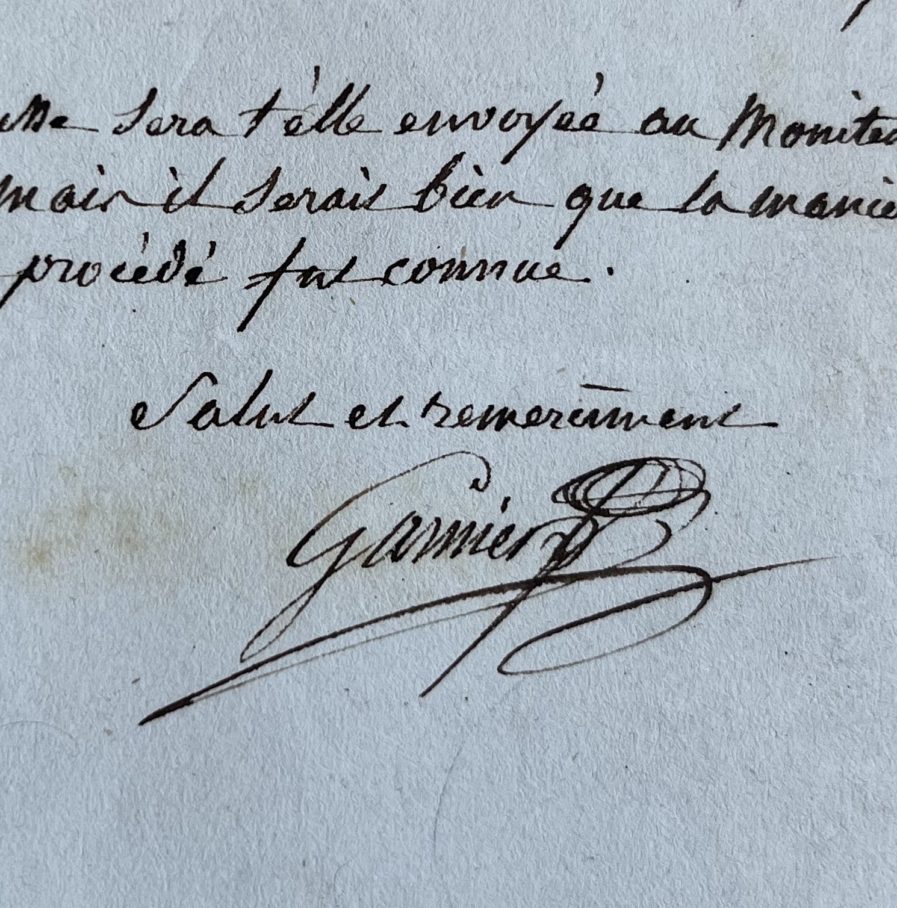 sera t'élle envoyée au Monite
mais il serais bien que la manie
procédé fut connue.
Salut et remercîment
Garnier